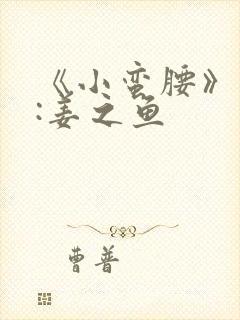 《小蛮腰》
:姜之鱼
曹普